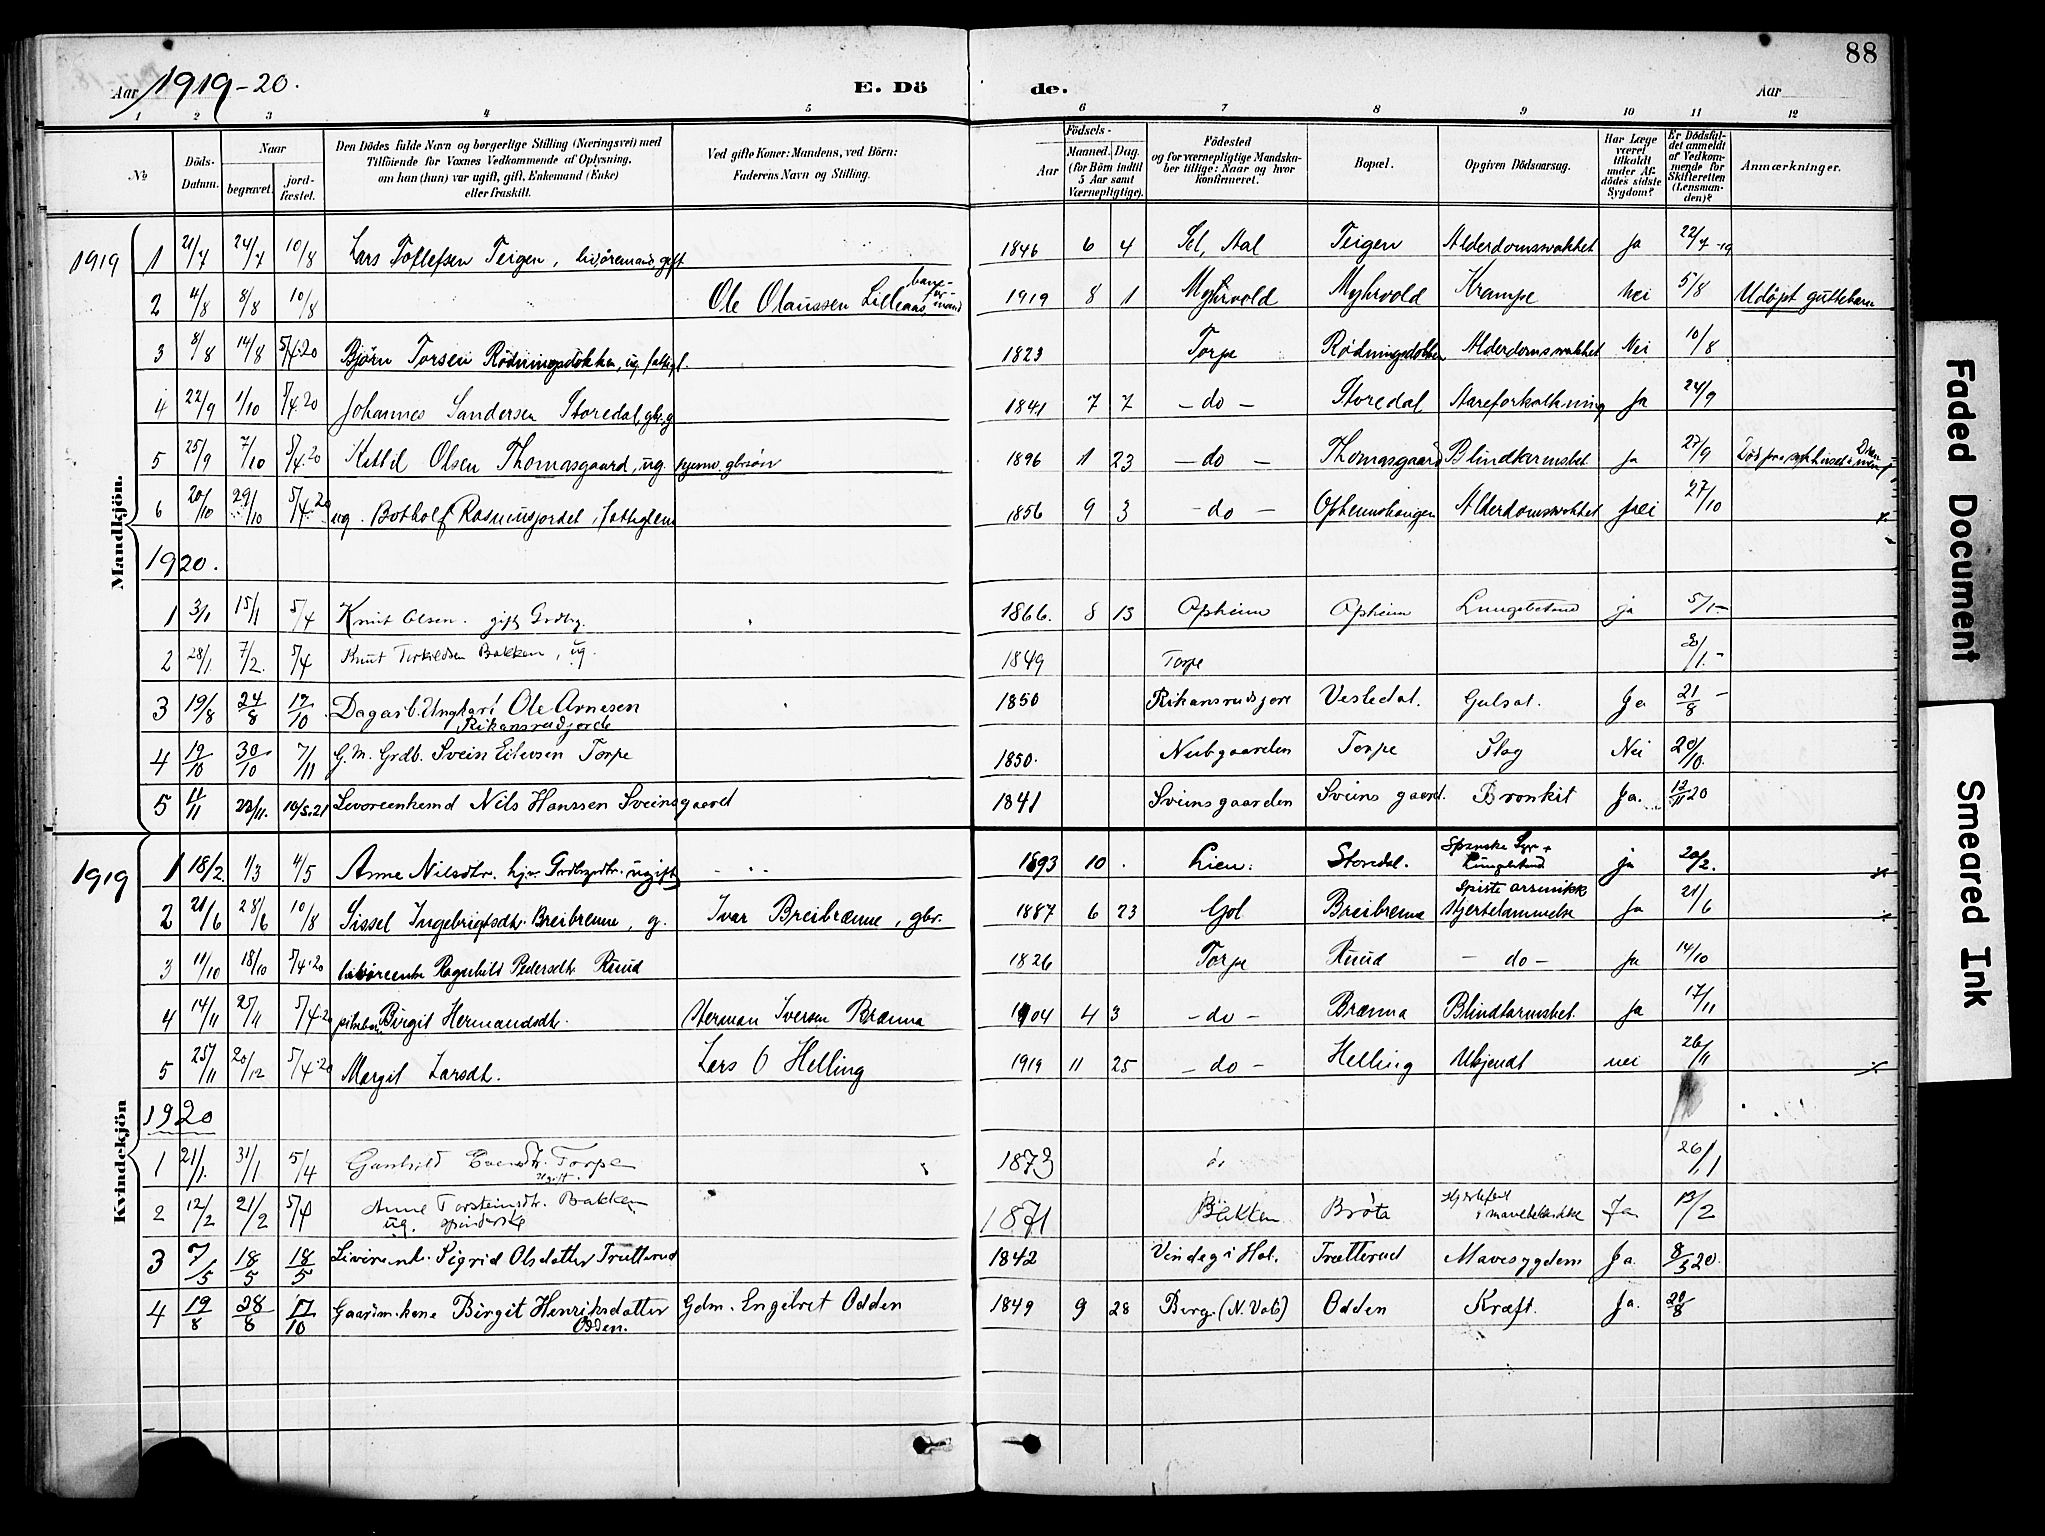 88
Aar 1919-20.
E. Dö de.
Aar
1 2 3 4 5 6 7 8 9 10 11 12
No
Döds-Datum.
Naar
begravet.
jord-fæstet.
Den Dödes fulde Navn og borgerlige Stilling (Næringsvei) med
Tilföiende for Voxnes Vedkommende af Oplysning,
om han (hun) var ugift, gift, Enkemand (Enke)
eller fraskilt.
Ved gifte Koner: Mandens, ved Börn:
Faderens Navn og Stilling.
Födsels-
Aar
Maaned. Dag.
(for Börn indtil
5 Aar samt
Værnepligtige).
Födested
og for værnepligtige Mandska-
ber tillige: Naar og hvor
konfirmeret.
Bopæl.
Opgiven Dödsaarsag.
Har Læge
været
tilkaldt
under Af-
dödes sidste
Sygdom?
Er Dödsfal-
det anmeldt
af Vedkom-
mende for
Skifteretten
(Lensman-
den)?
Anmærkninger.
Mandkjön.
1919 1 21/7 24/7 10/8 Lars Toflefsen Teigen, livöremand, gift 1846 6 4 Sel, Aal Teigen Alderdomssvakhet Ja 22/7-19
2 4/8 8/8 10/8 Ole Olaussen Lilleaas 1919 8 1 Myhrvold Myhrvold Krampe Nei 5/8 Udöpt guttebarn
3 8/8 14/8 5/4.20 Björn Torsen Rödningsdokken, ug. fattigl. 1823 Torpe Rödningsdokken Alderdomssvakhet Nei 10/8
4 22/9 1/10 5/4.20 Johannes Sandersen Storedal, gbr. g 1841 7 7 - do - Storedal Aareforkalkning Ja 24/9
5 25/9 7/10 5/4.20 Kittil Olsen Thomasgaard, ug. hjemv. gbrsön 1896 1 23 - do - Thomasgaard Blindtarmsbet Ja 27/9
6 20/10 29/10 5/4.20 ug. Botholf Rasmusjordet, fattiglem 1856 9 3 - do - Opheimshaugen Alderdomssvakhet Nei 27/10
1920.
1 3/1 15/1 5/4 Knut Olsen. gift Grdbr. 1866. 8 13 Opheim Opheim Lungebetænd ja 5/1-
2 28/1. 7/2. 5/4 Knut Torkildsen Bakken, ug. 1849 Torpe
3 19/8 24/8 17/10. Dagarb. Ungkarl Ole Arnesen 1850 Rikansrudsjore Vestedal. Gulsot. Ja 21/8 -
Rikansrudjorde
4 19/10 30/10 7/11 G.M. Grdb. Svein Eilevsen Torpe 1850. Nubgaarden Torpe Slag Nei 20/10.
5 11/11 22/11. 10/5.21 Levöreenkemd Nils Hanssen Sveinsgaard 1841 Sveinsgaarden Sveins gaard. Bronkit Ja. 12/11 20
Kvindekjön
1919 1 18/2. 1/3 4/5 Anne Nilsdtr. hjv. Grdbrdtr. ugift 1893 10 . Lien. Storedal. Spanske Syge + ja 20/2.
2 21/6 28/6 10/8 Sissel Ingebrigtsdtr. Breibrenne, g. Ivar Breibrænne, gbr. 1887 6 23 Gol Breibrenna Spiste arsenikk Hjertelammelse Ja 21/6
3 11/10 18/10 5/4.20 livöreenke Ragnhild Pedersdtr. Ruud 1826 Torpe Ruud - do - Ja 14/10
4 14/11 25/11 5/4.20 pikebarn Birgit Hermandsdtr. Herman Iversen Brænna 1904 4 3 - do - Brænna Blindtarmsbet Ja 17/11
5 25/11 20/12 5/4.20 Margit Larsdtr. Lars O Helling 1919 11 25 - do - Helling Ukjendt nei 26/11
1920
1 21/1. 31/1 5/4 Gunhild Evensdtr. Torpe 1873 do 26/1
Ugift.
2 12/2 21/2 5/4 Anne Torsteinsdtr. Bakken 1871 Bakken Bröta Hjertefeil Ja 13/2
ug. spinderske
3 7/5 18/5 18/5 Livörenk. Sigrid Olsdatter Trætterud 1842 Vindeg i Hol. Trætterud Mavesygdom Ja. 8/5 20.
4 19/8 28/8 17/10 Gaardm.kone Birgit Henriksdatter Gdm. Engebret Odden 1849 9 28 Berg. (N. Vats) Odden Kræft. Ja. 20/8
Odden.
Faded Document
Smeared Ink